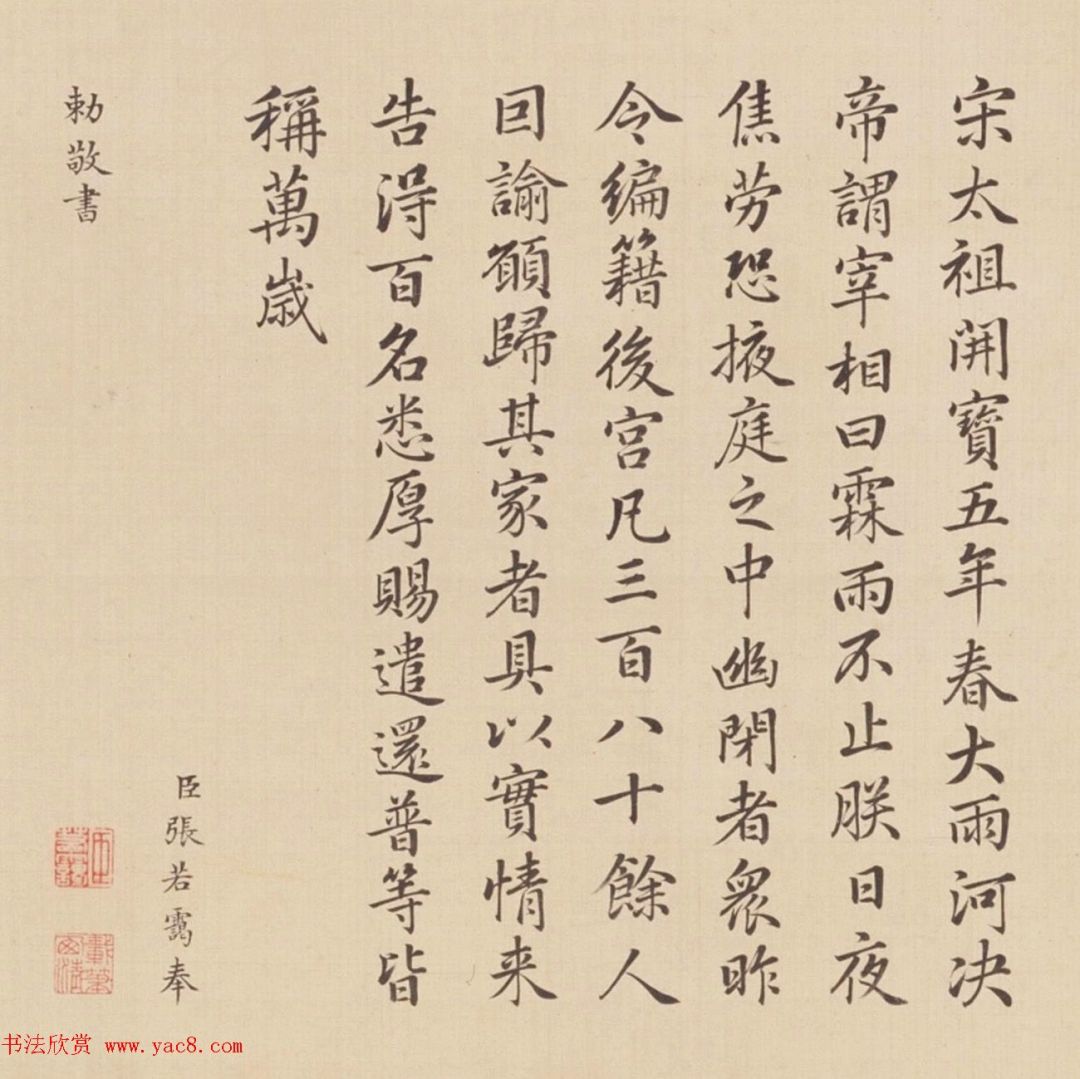 宋太祖開寶五年春大雨河決
帝謂宰相曰霖雨不止朕日夜
焦勞恐掖庭之中幽閉者衆昨
令編籍後宮凡三百八十餘人
因諭願歸其家者具以實情来
告得百名悉厚賜遣還普等皆
稱萬歲
臣張若靄奉
勅敬書
书法欣赏 www.yac8.com